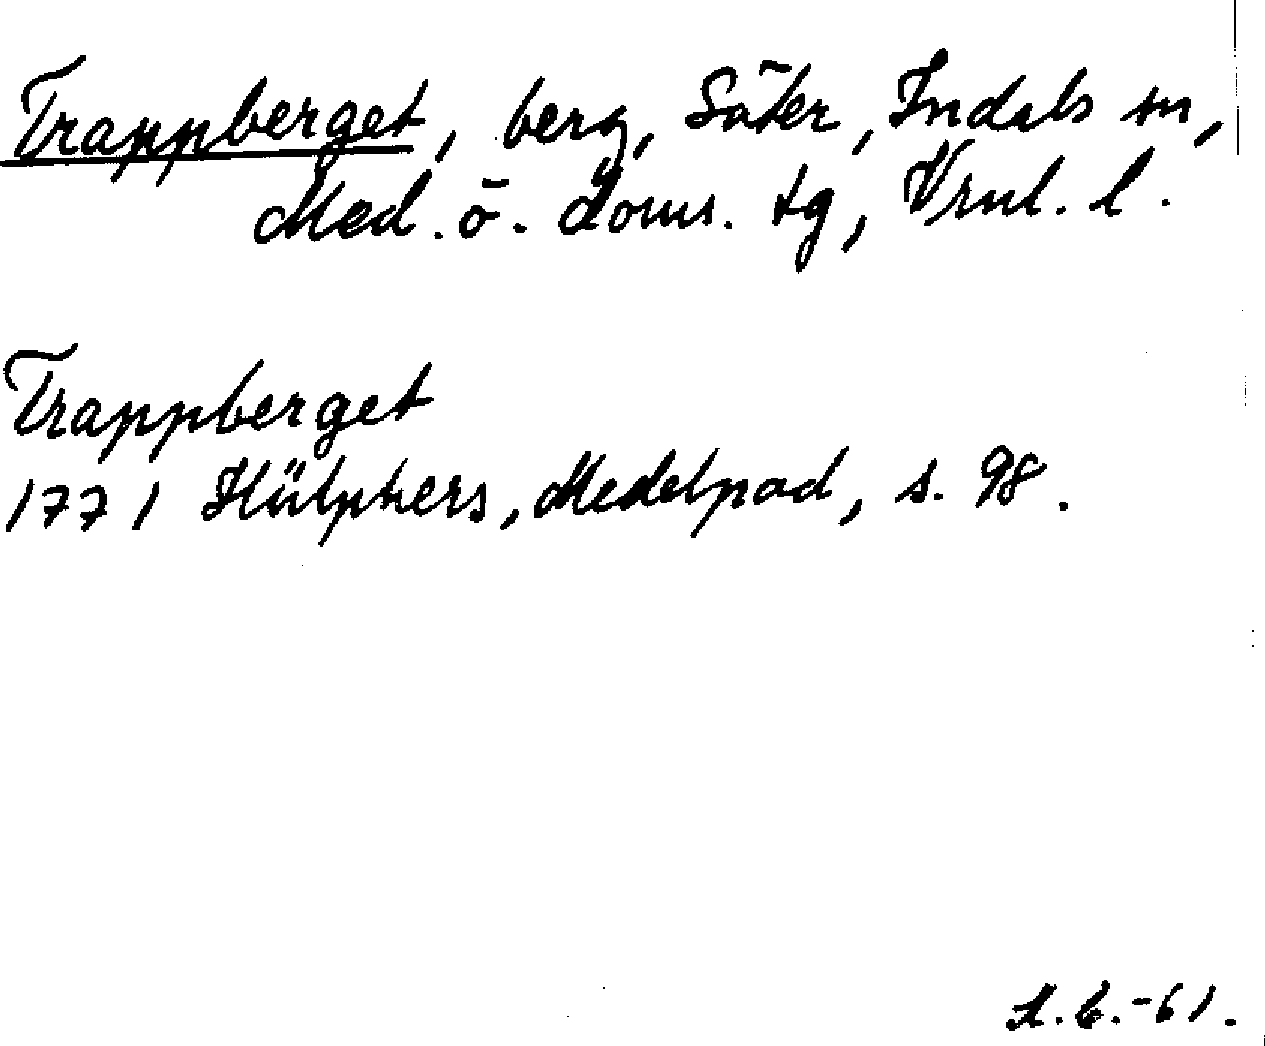 Trappberget, berg, Säter, Indals sn,
Med. ö. doms. tg, Vrnl. l.
Trappberget
1771 Hülphers, Medelpad, s. 98.
L.B.-61.